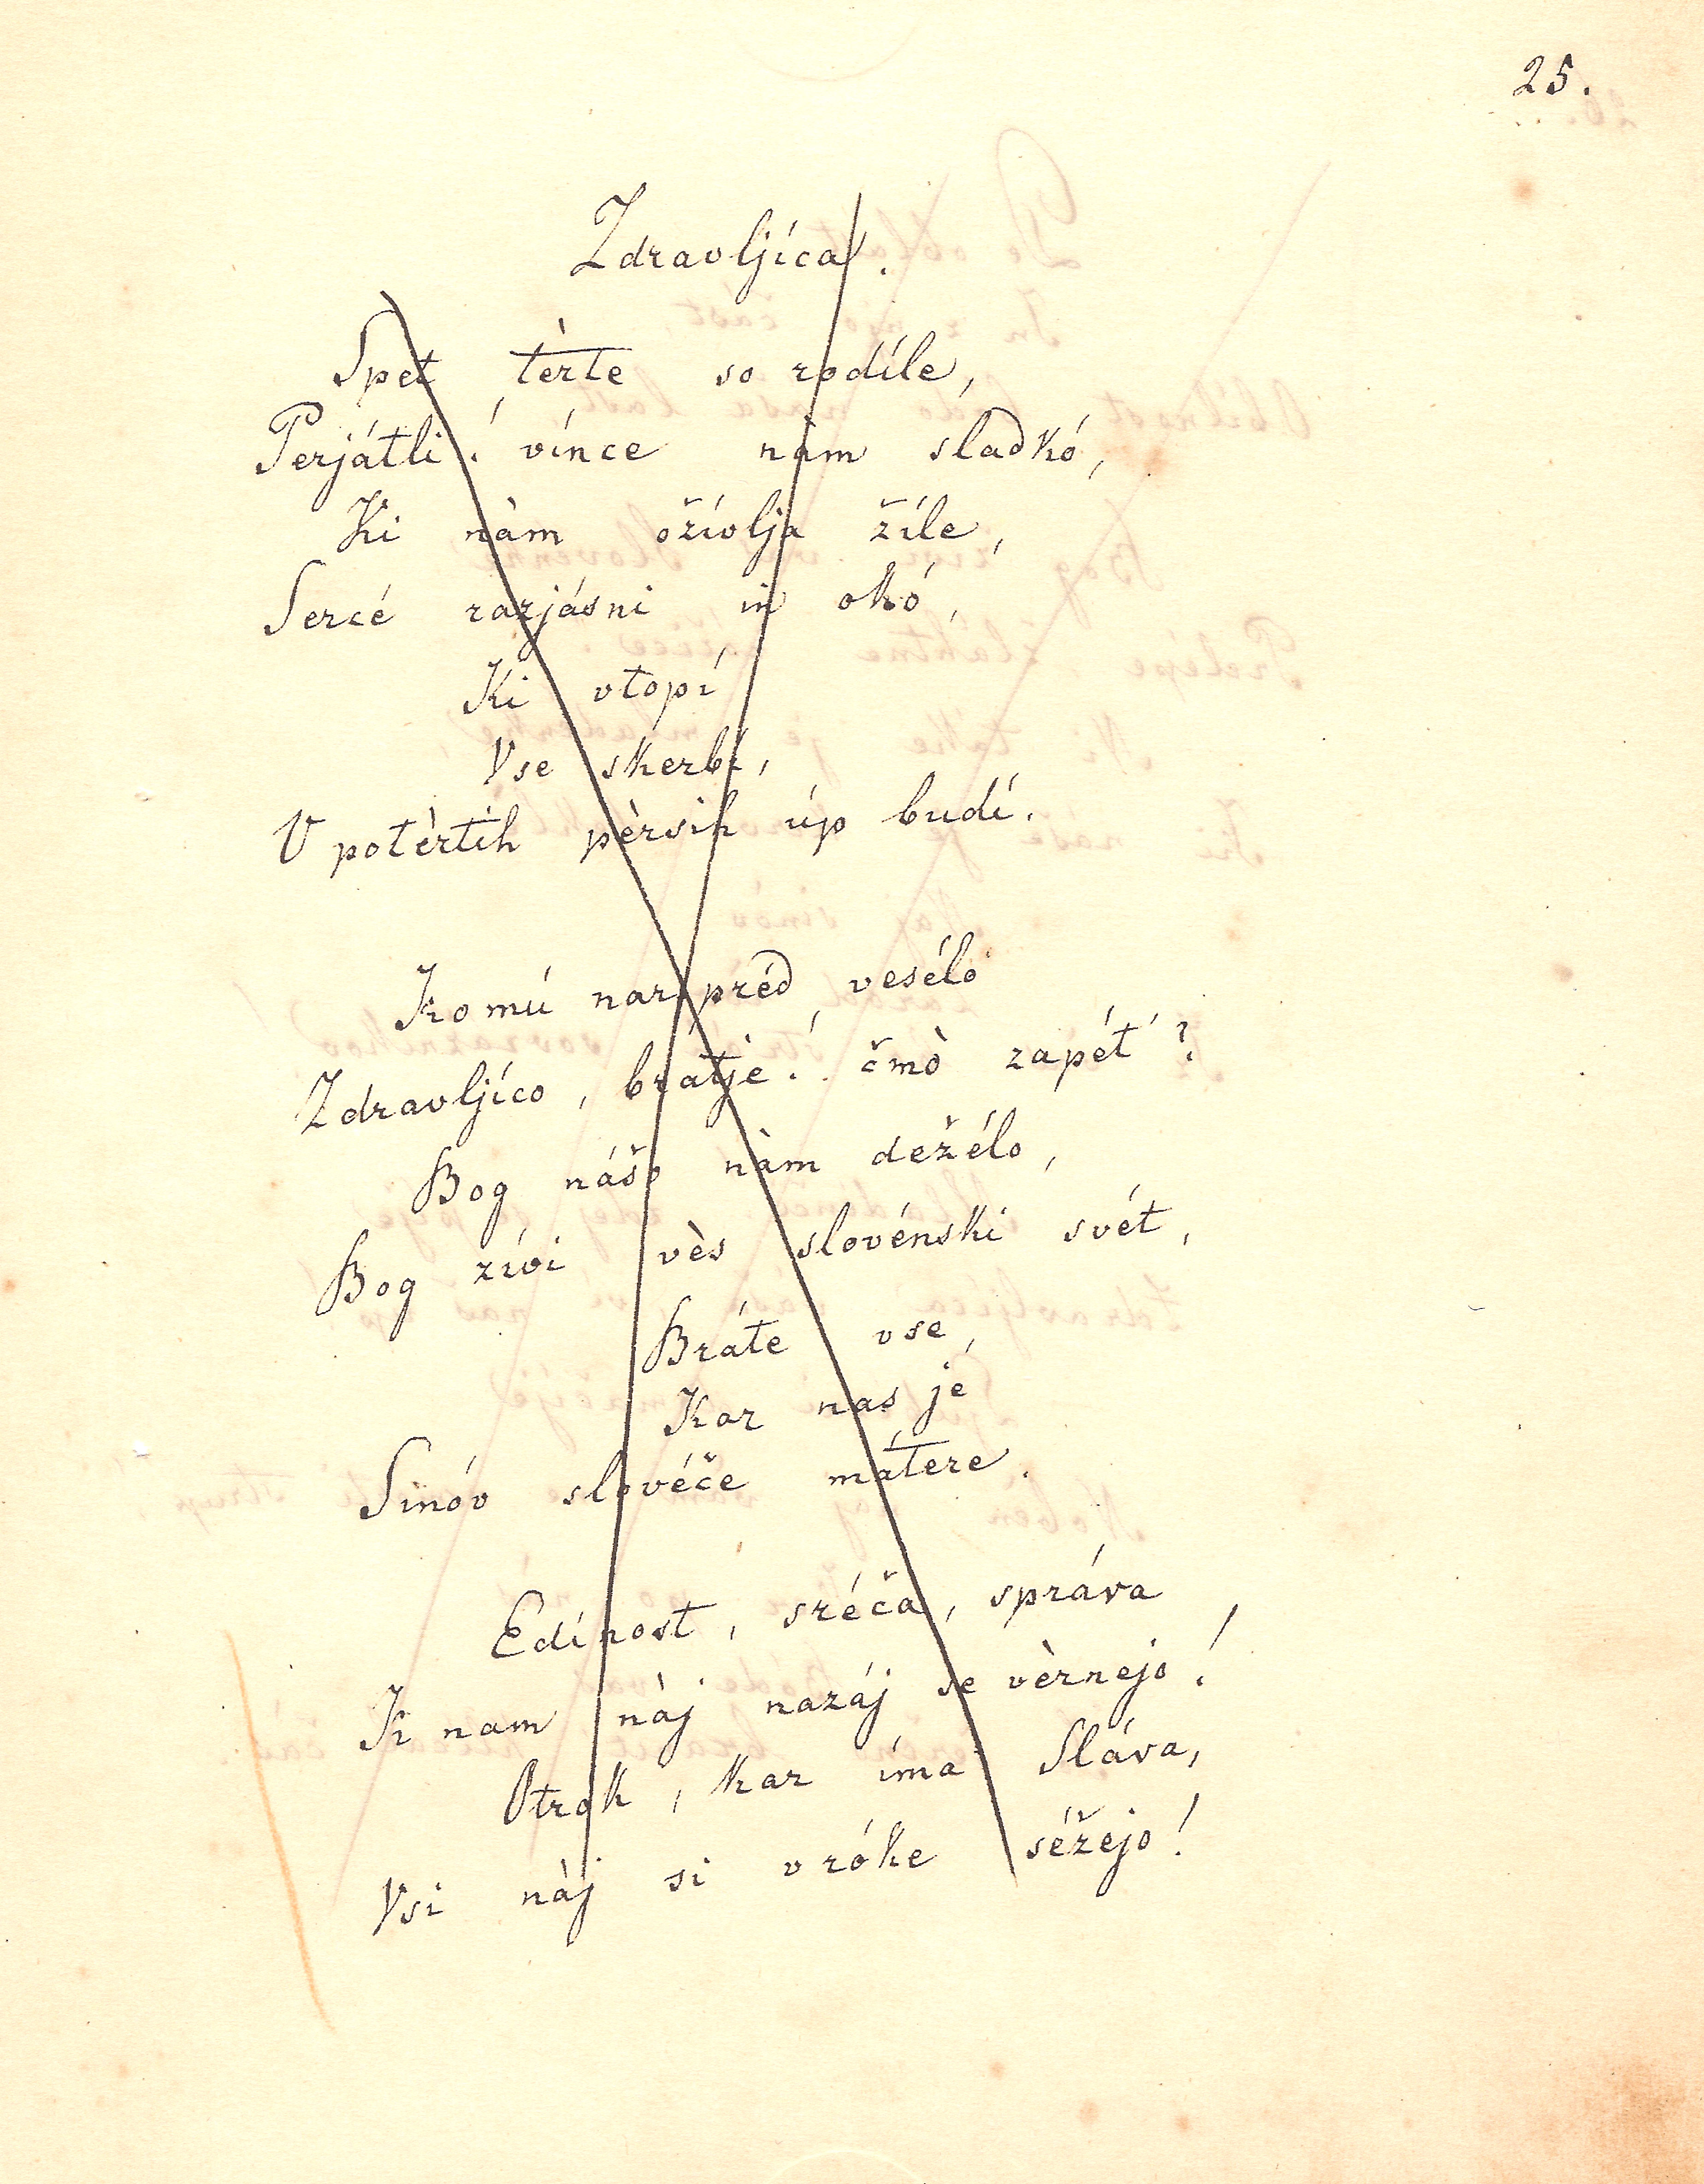 25.
Zdravljíca.
Spet tèrte so rodíle,
Perjátli! vínce nàm sladkó,
Ki nàm ožívlja žíle,
Sercé razjásni in okó,
Ki vtopí
Vse skerbí,
V potèrtih pèrsih úp budí.
Komú narpréd vesélo
Zdravljíco, bratje! čmò zapét'?
Bog nášo nàm dežélo,
Bog živi vès slovénski svét,
Bráte vse,
Kar nas je
Sinóv slovéče mátere.
Edínost, sréča, správa
K nam nàj nazáj se vèrnejo!
Otrok, kar íma Sláva,
Vsi nàj si v róke séžejo!